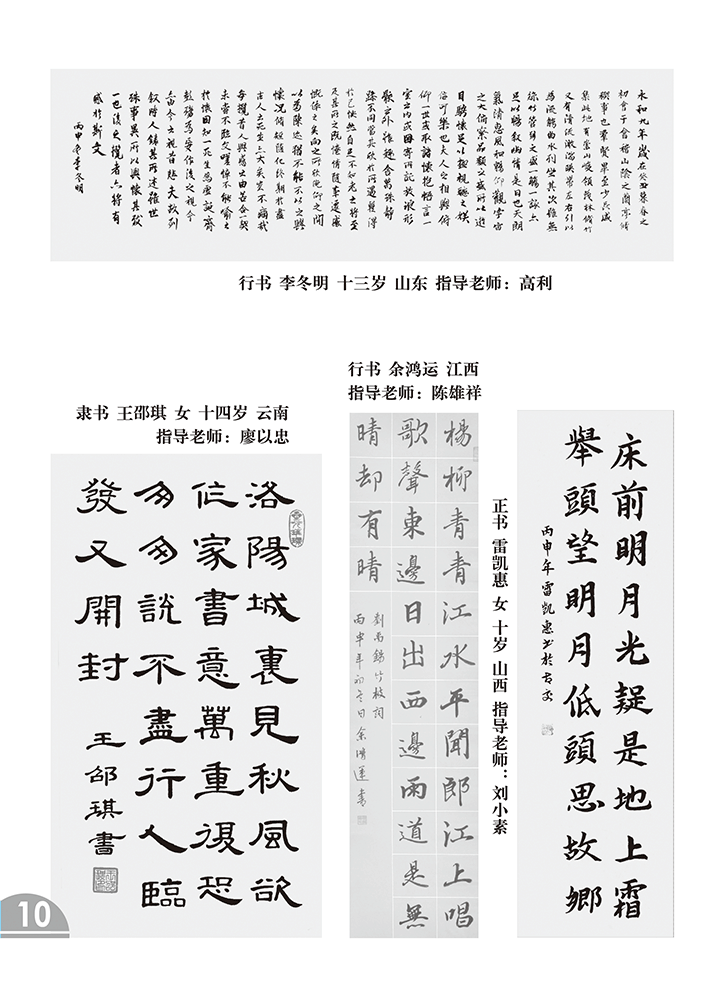 永和九年歲在癸丑暮春之
初會于會稽山陰之蘭亭脩
禊事也羣賢畢至少長咸
集此地有崇山峻領茂林脩竹
又有清流激湍暎帶左右引以
為流觴曲水列坐其次雖無
絲竹管絃之盛一觴一詠亦
足以暢敘幽情是日也天朗
氣清惠風和暢仰觀宇宙
之大俯察品類之盛所以遊
目騁懷足以極視聽之娛
信可樂也夫人之相與俯
仰一世或取諸懷抱悟言一
室之內或因寄所託放浪形
骸之外雖趣舍萬殊靜
躁不同當其欣於所遇暫得
於己快然自足不知老之將至
及其所之既倦情隨事遷感
慨係之矣向之所欣俛仰之間
以為陳迹猶不能不以之興
懷況脩短隨化終期於盡
古人云死生亦大矣豈不痛哉
每攬昔人興感之由若合一契
未嘗不臨文嗟悼不能喻之
於懷固知一死生為虛誕齊
彭殤為妄作後之視今
亦由今之視昔悲夫故列
敘時人錄其所述雖世
殊事異所以興懷其致
一也後之攬者亦將有
感於斯文
丙申冬李冬明
行书 李冬明 十三岁 山东 指导老师：高利
行书 余鸿运 江西
指导老师：陈雄祥
隶书 王邵琪 女 十四岁 云南
指导老师：廖以忠
床前明月光疑是地上霜
舉頭望明月低頭思故鄉
丙申年雷凱惠書於
正书 雷凯惠 女 十岁 山西 指导老师：刘小素
楊柳青青江水平聞郎江上唱
歌聲東邊日出西邊雨道是無
晴却有晴
劉禹錫竹枝詞
丙申年初冬日余鴻運書
洛陽城裏見秋風欲
作家書意萬重復恐
匆匆說不盡行人臨
發又開封
王邵琪書
10